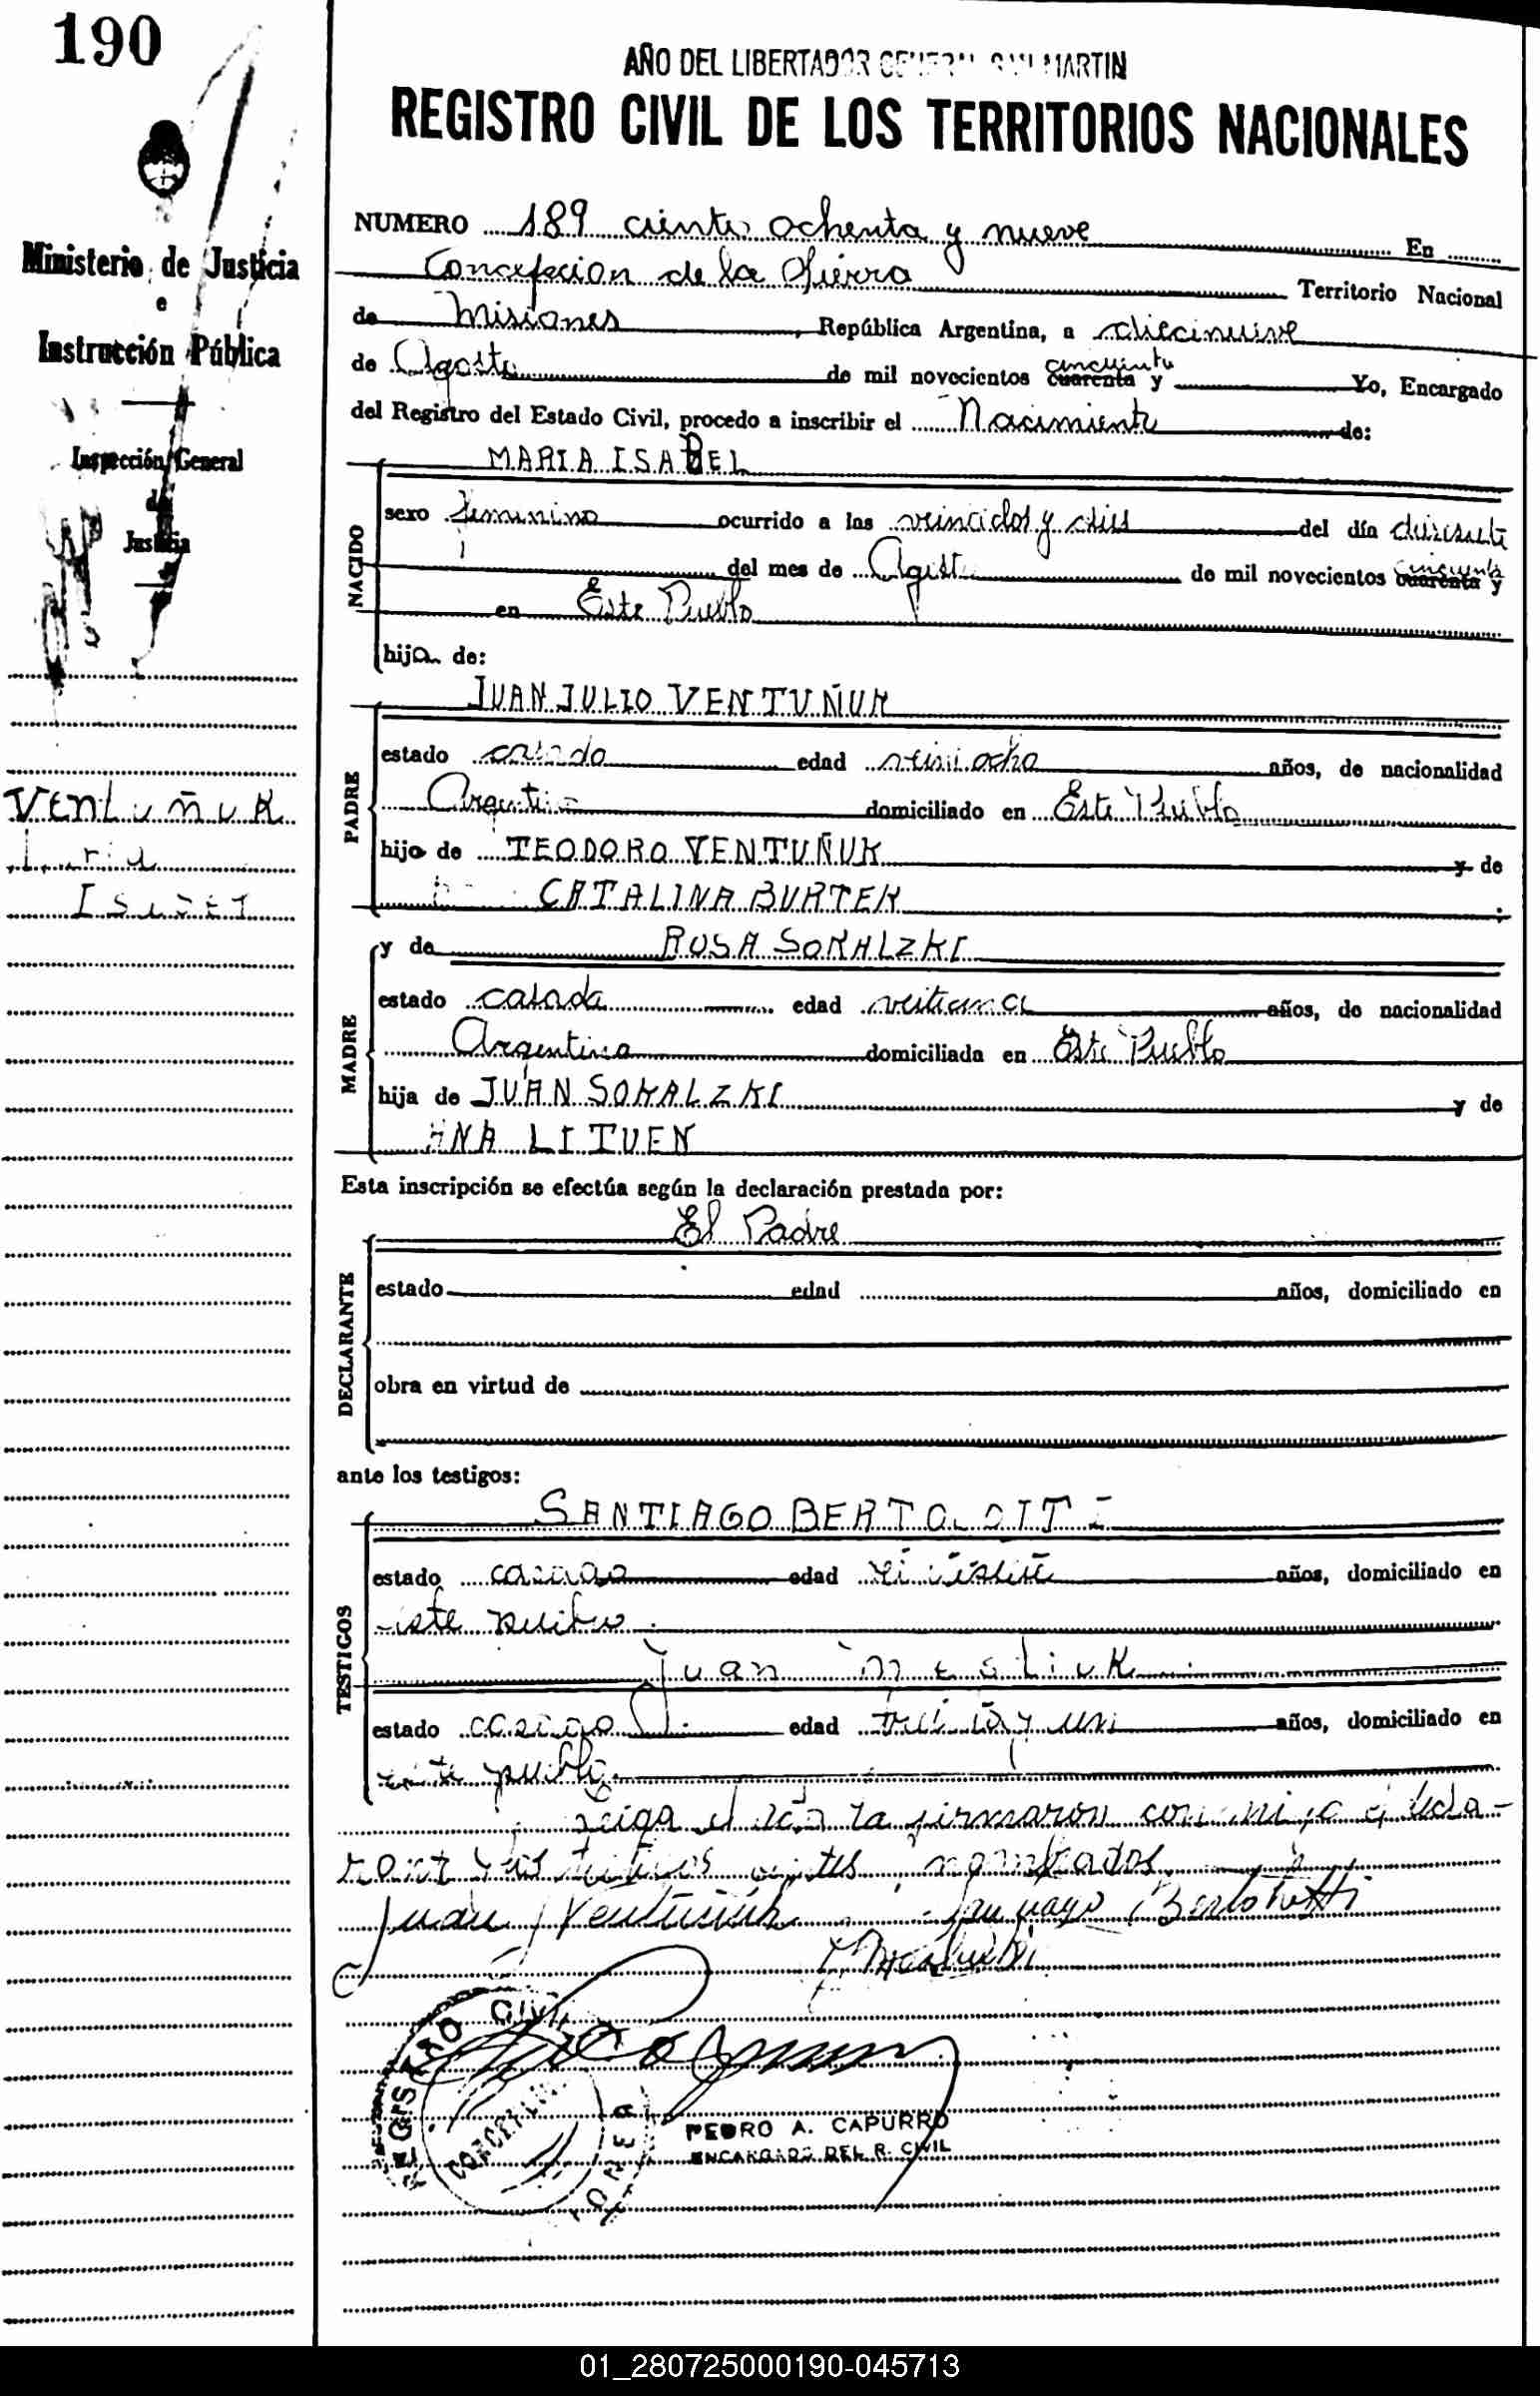 190
AÑO DEL LIBERTADOR GENERAL SAN MARTIN
REGISTRO CIVIL DE LOS TERRITORIOS NACIONALES
Ministerio de Justicia
e
Instrucción Pública
Inspección General
de
Justicia
NUMERO 189 ciento ochenta y nueve En
Concepcion de la Sierra Territorio Nacional
de Misiones, República Argentina, a diecinueve
de Agosto de mil novecientos cincuenta cuarenta y Yo, Encargado
del Registro del Estado Civil, procedo a inscribir el Nacimiento de:
NACIDO
MARIA ISABEL
sexo femenino ocurrido a las veincidos y dies del día diecisiete
del mes de Agosto de mil novecientos cincuenta cuarenta y
en Este Pueblo
hija de:
PADRE
JUAN JULIO VENTUÑUK
estado casado edad veintiocho años, de nacionalidad
Argentino domiciliado en Este Pueblo
hijo de TEODORO VENTUÑUK y de
CATALINA BURTEK;
VENTUÑUK
Maria
ISABEL
MADRE
y de ROSA SOKALZKI
estado casada edad veitiuna años, de nacionalidad
Argentina domiciliada en Este Pueblo
hija de JUAN SOKALZKI y de
ANA LITUEN
Esta inscripción se efectúa según la declaración prestada por:
DECLARANTE
El Padre
estado edad años, domiciliado en
obra en virtud de
ante los testigos:
TESTIGOS
SANTIAGO BERTOLOTTI
estado casado edad años, domiciliado en
este pueblo
Juan Mesliuk
estado casado edad treinta y un años, domiciliado en
este pueblo
el la firmaron conmigo el decla-
rante y los testigos nombrados
Juan J Ventuñuk Santiago Bertolotti
J Mesliuk
REGISTRO CIVIL
CONCEPCION
PEDRO A. CAPURRO
ENCARGADO DEL R. CIVIL
01_280725000190-045713